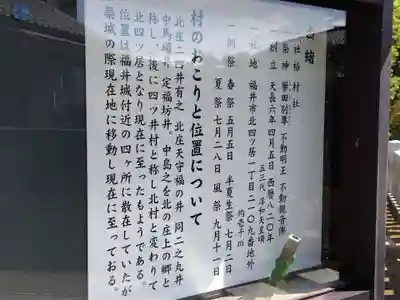 由緒
社 柗村社
祭神 譽田別尊 不動明王 不動龍吾佛
一創立 天長六年四月五日 西暦八二〇年
五三代 淳和天皇頃
一社地 福井市北四ツ居一丁目二一〇九番地外
一例祭 春祭 五月五日 半夏生祭 七月二日
夏祭 七月二八日 風祭 九月十一日
村のおこりと位置について
北庄二四井有之 北庄天守福の井 同二之丸井
中馬場井 定福坊井。中島之を北の庄上の郷と
称し、後に四ツ井村と称し北村と変わりて
北四ツ居となり現在に至ったもようである。
位置は福井城付近の四ヶ所に散在していたが
築城の際現在地に移動し現在に至っておる。